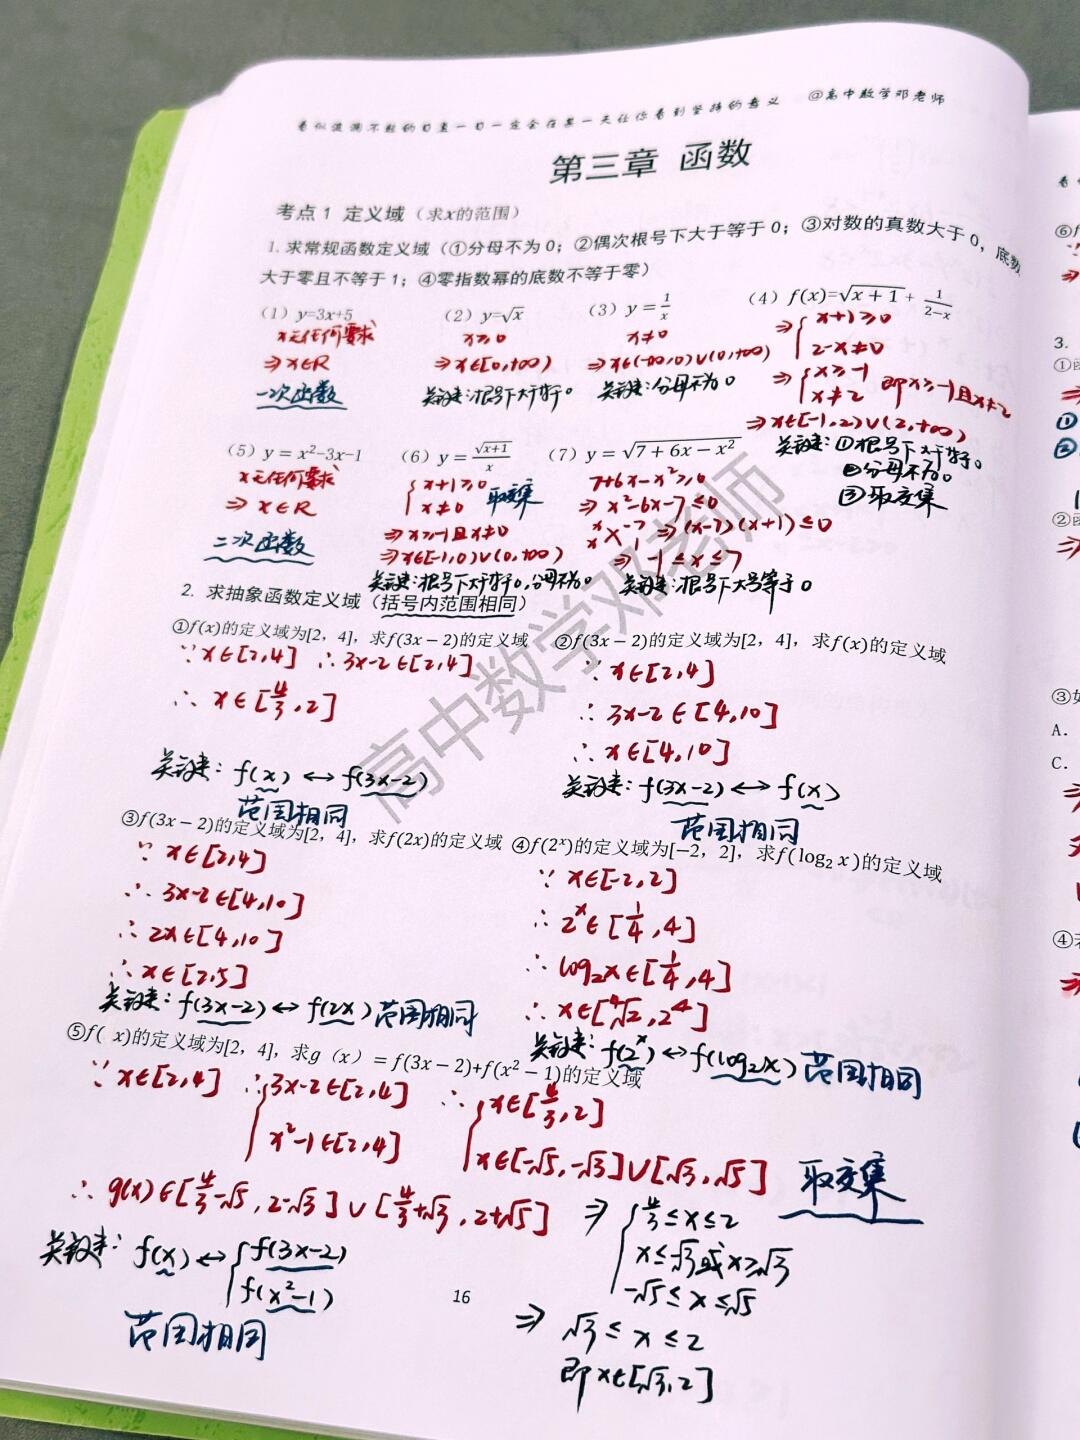 看似波澜不惊的日复一日一定会在某一天让你看到坚持的意义 @高中数学邓老师
第三章 函数
考点1 定义域（求x的范围）
1.求常规函数定义域（①分母不为0；②偶次根号下大于等于0；③对数的真数大于0，底数
大于零且不等于1；④零指数幂的底数不等于零）
(1) y=3x+5
x无任何要求
⇒x∈R
一次函数
(2) y=√x
x≥0
⇒x∈[0,+∞)
关键:根号下大于等于0
(3) y=1/x
x≠0
⇒x∈(-∞,0)∪(0,+∞)
关键:分母不为0
(4) f(x)=√(x+1)+1/(2−x)
⇒{x+1≥0
2-x≠0
⇒{x≥-1
x≠2 即x≥-1且x≠2
⇒x∈[-1,2)∪(2,+∞)
关键:①根号下大于等于0
②分母不为0
③取交集
(5) y=x²−3x−1
x无任何要求
⇒x∈R
二次函数
(6) y=√(x+1)/x
{x+1≥0
x≠0 取交集
⇒x≥-1且x≠0
⇒x∈[-1,0)∪(0,+∞)
关键:根号下大于等于0,分母不为0
(7) y=√(7+6x−x²)
7+6x-x²≥0
⇒x²-6x-7≤0
x -7
x 1 ⇒(x-7)(x+1)≤0
⇒-1≤x≤7
关键:根号下大号等于0
2. 求抽象函数定义域（括号内范围相同）
①f(x)的定义域为[2，4]，求f(3x−2)的定义域
∵x∈[2,4] ∴3x-2∈[2,4]
∴x∈[4/3,2]
关键:f(x)↔f(3x-2)
范围相同
②f(3x−2)的定义域为[2，4]，求f(x)的定义域
∵x∈[2,4]
∴3x-2∈[4,10]
∴x∈[4,10]
关键:f(3x-2)↔f(x)
范围相同
③f(3x−2)的定义域为[2，4]，求f(2x)的定义域
∵x∈[2,4]
∴3x-2∈[4,10]
∴2x∈[4,10]
∴x∈[2,5]
关键:f(3x-2)↔f(2x)范围相同
④f(2ˣ)的定义域为[−2，2]，求f(log₂x)的定义域
∵x∈[-2,2]
∴2ˣ∈[1/4,4]
∴log₂x∈[1/4,4]
∴x∈[⁴√2,2⁴]
关键:f(2ˣ)↔f(log₂x)范围相同
⑤f( x)的定义域为[2，4]，求g（x）=f(3x−2)+f(x²−1)的定义域
∵x∈[2,4] ∴{3x-2∈[2,4]
x²-1∈[2,4]
∴{x∈[4/3,2]
x∈[-√5,-√3]∪[√3,√5] 取交集
∴g(x)∈[4/3-√5,2-√3]∪[4/3+√3,2+√5]
⇒{4/3≤x≤2
x≤-√3或x≥√3
-√5≤x≤√5
⇒√3≤x≤2
即x∈[√3,2]
关键:f(x)↔{f(3x-2)
f(x²-1)
范围相同
16
高中数学邓老师
3.
①
②
③
A.
C.
④